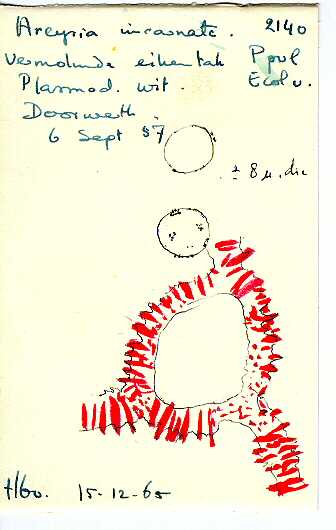 Arcyria incarnata. 2140
Vermolmde eikentak Povl
Plasmod. wit. Ecol v.
Doorwerth.
6 Sept 57
± 8 µ. dia
15-12-65